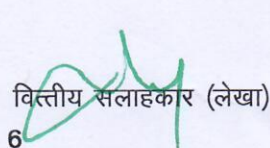 वित्तीय सलाहकार (लेखा)
6